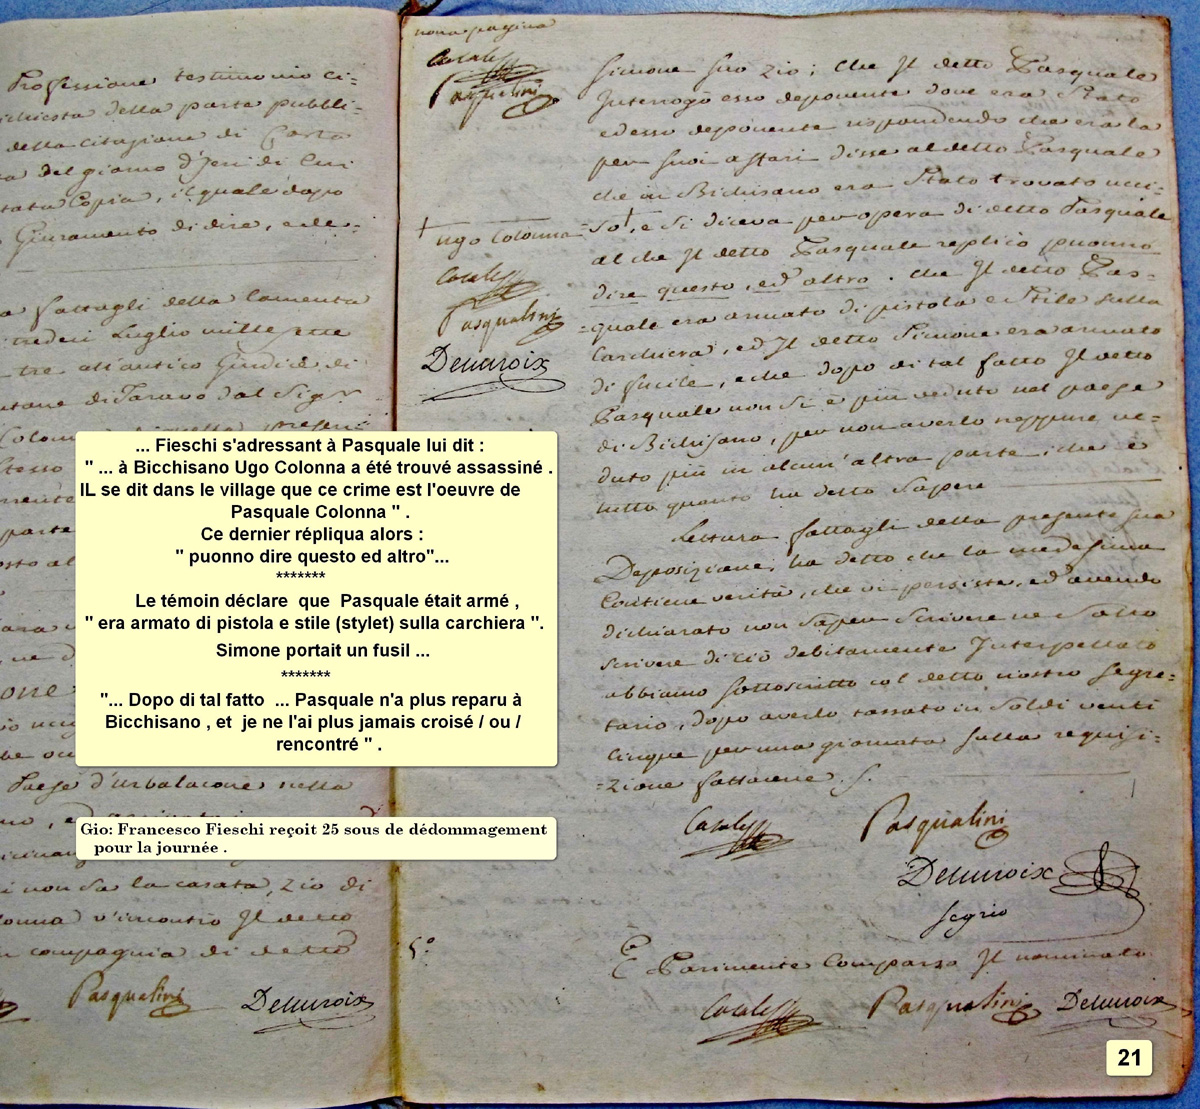 Professione testimonio ci-
ichiesta della parte pubbli-
della citazione di
a del giorno d'Jeri di Cui
tata Copia, il quale dopo
Giuramento di dire, e de-
a fattagli della lamenta
tredeci Luglio mille
tre all'antico Giudice di
di Taravo dal Sigr
Colonna
stesso
parte
Paese d'Urbalacone nella
i non sa la casata, zio di
lonna v'incontrò Il detto
n compagnia di detto
Pasqualini Delucroix
nona pagina
Casale
Pasqualini
+ Ugo Colonna
Casale
Pasqualini
Delucroix
Simone suo zio; che Il detto Pasquale
Interrogò esso deponente dove era Stato
ed esso deponente rispondendo che era la
per suoi affari disse al detto Pasquale
che in Bichisano era Stato trovato ucci-
so+, e si diceva per opera di detto Pasquale
al che Il detto Pasquale replicò puonno
dire questo, ed altro. che Il detto Pas-
quale era armato di pistola e Stile sulla
Carchiera, ed Il detto Simone era armato
di fucile, e che dopo di tal fatto Il detto
Pasquale non si è più veduto nel paese
di Bichisano, per non averlo neppure ve-
duto più in alcun'altra parte; che è
tutto quanto ha detto Sapere
Lettura fattagli della presente sua
Deposizione, ha detto che la medesima
Contiene verità, che vi persiste, ed avendo
dichiarato non saper Scrivere ne Sotto
scrivere di ciò debitamente Interpellato
abbiamo sottoscritto col detto nostro Segre-
tario, dopo averlo tassato in Soldi venti
cinque per una giornata sulla requizi-
zione fattacene. S.
Casale Pasqualini
Delucroix
Segrio
5°
E Parimente Comparso Il nominato
Casale Pasqualini Delucroix
... Fieschi s'adressant à Pasquale lui dit :
" ... à Bicchisano Ugo Colonna a été trouvé assassiné .
IL se dit dans le village que ce crime est l'oeuvre de
Pasquale Colonna " .
Ce dernier répliqua alors :
" puonno dire questo ed altro"...
*******
Le témoin déclare que Pasquale était armé ,
" era armato di pistola e stile (stylet) sulla carchiera ".
Simone portait un fusil ...
*******
"... Dopo di tal fatto ... Pasquale n'a plus reparu à
Bicchisano , et je ne l'ai plus jamais croisé / ou /
rencontré " .
Gio: Francesco Fieschi reçoit 25 sous de dédommagement
pour la journée .
21